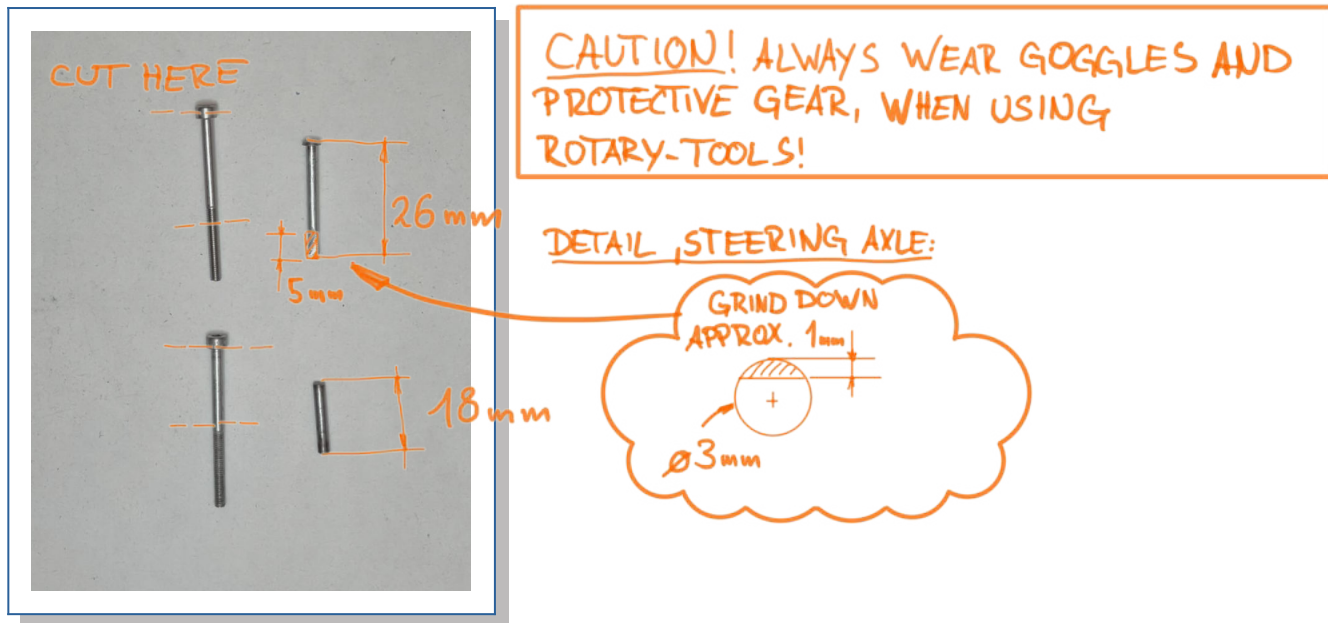 CUT HERE
26mm
5mm
18mm
CAUTION! ALWAYS WEAR GOGGLES AND
PROTECTIVE GEAR, WHEN USING
ROTARY-TOOLS!
DETAIL, STEERING AXLE:
GRIND DOWN
APPROX. 1mm
ø3mm